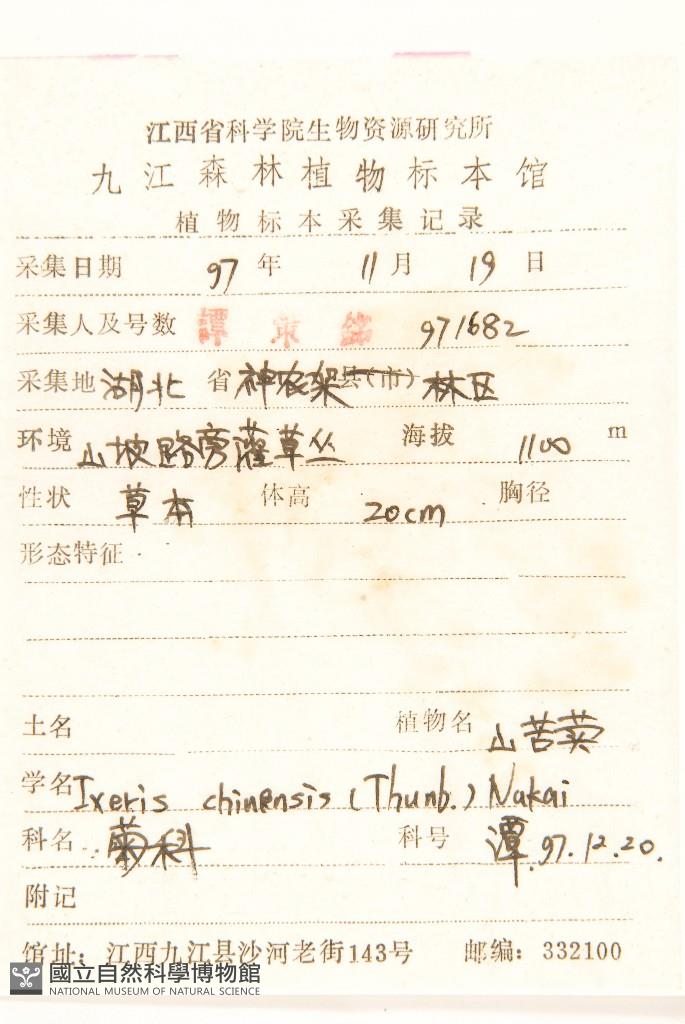 江西省科学院生物资源研究所
九江森林植物标本馆
植物标本采集记录
采集日期 97 年 11 月 19 日
采集人及号数 譚策銘 971682
采集地 湖北 省 神农架 县(市) 林区
环境 山坡路旁灌草丛 海拔 1100 m
性状 草本 体高 20cm 胸径
形态特征
土名 植物名 山苦荬
学名 Ixeris chinensis (Thunb.) Nakai
科名 菊科 科号 潭.97.12.20.
附记
馆址：江西九江县沙河老街143号 邮编：332100
國立自然科學博物館
NATIONAL MUSEUM OF NATURAL SCIENCE